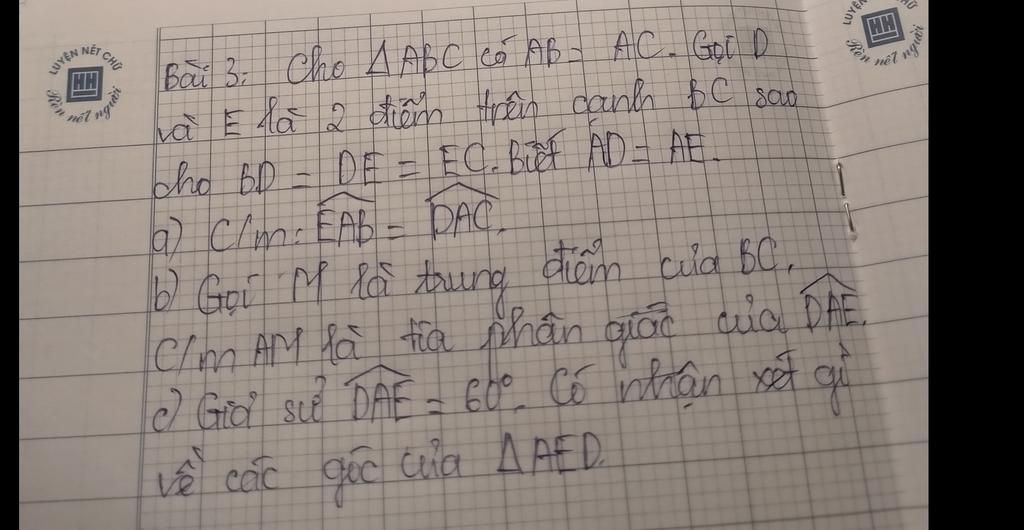 LUYỆN NÉT CHỮ
HH
Rèn nết người
LUYỆN CHỮ
HH
Rèn nết người
Bài 3: Cho ΔABC có AB = AC. Gọi D
và E là 2 điểm trên cạnh BC sao
cho BD = DE = EC. Biết AD = AE.
a) C/m: \widehat{EAB} = \widehat{DAC}.
b) Gọi M là trung điểm của BC.
C/m AM là tia phân giác của \widehat{DAE}.
c) Giả sử \widehat{DAE} = 60°. Có nhận xét gì
về các góc của ΔAED.